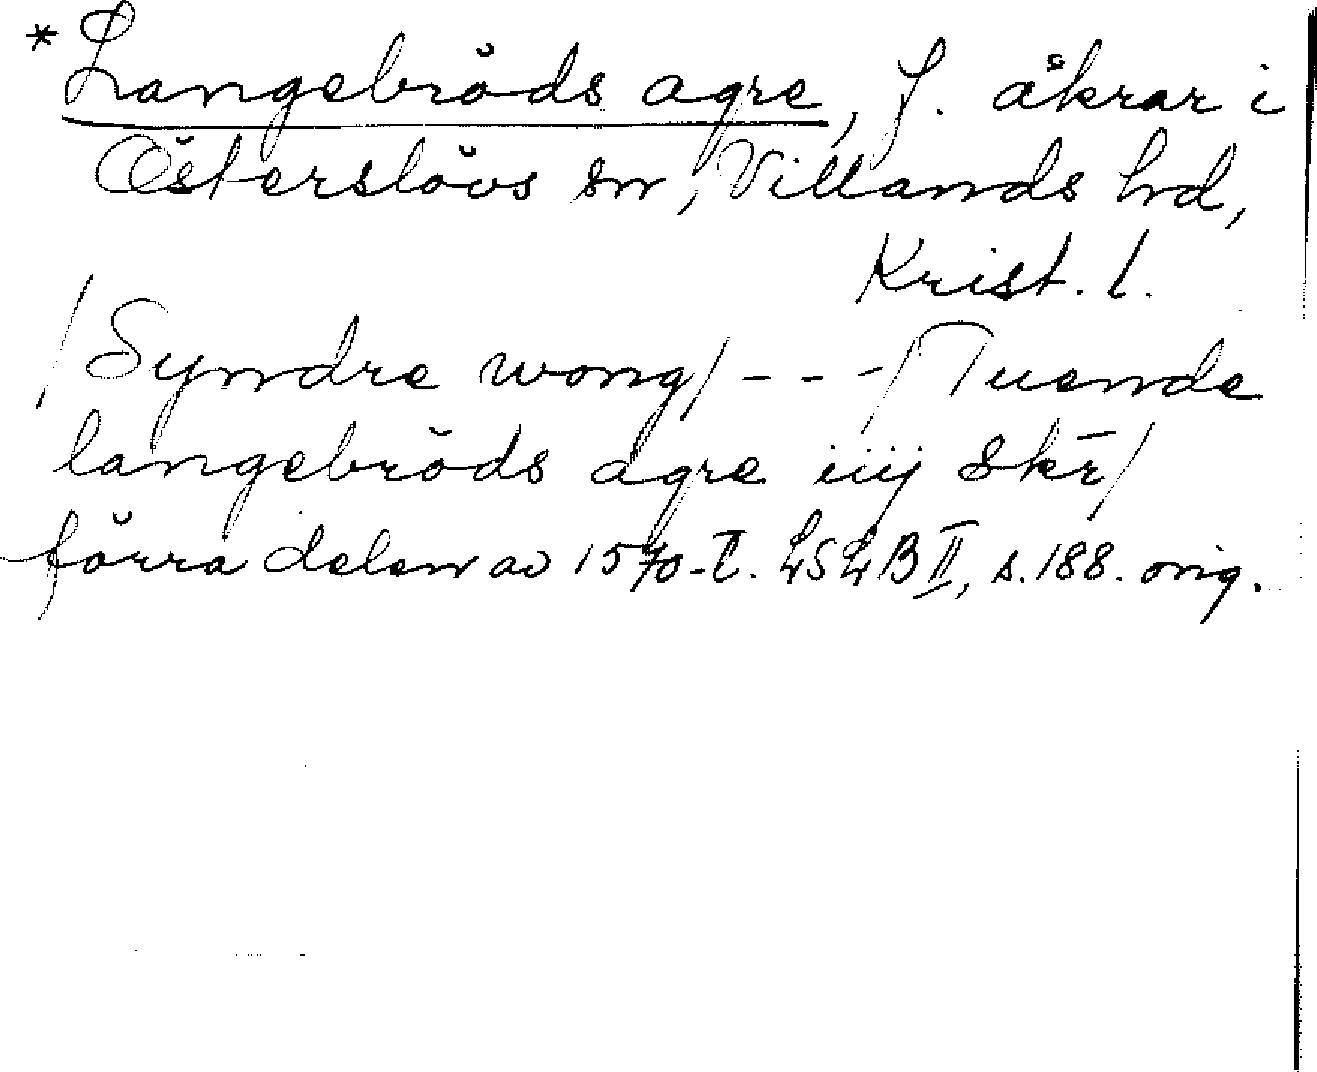 *Langebröds agre, f. åkrar i
Österslövs sn, Villands hd,
Krist. l.
/Syndre wong/ - - -/Tuende
langebröds agre iiij skr̄/
förra delen av 1570-t. LSLB II, s. 188. orig.